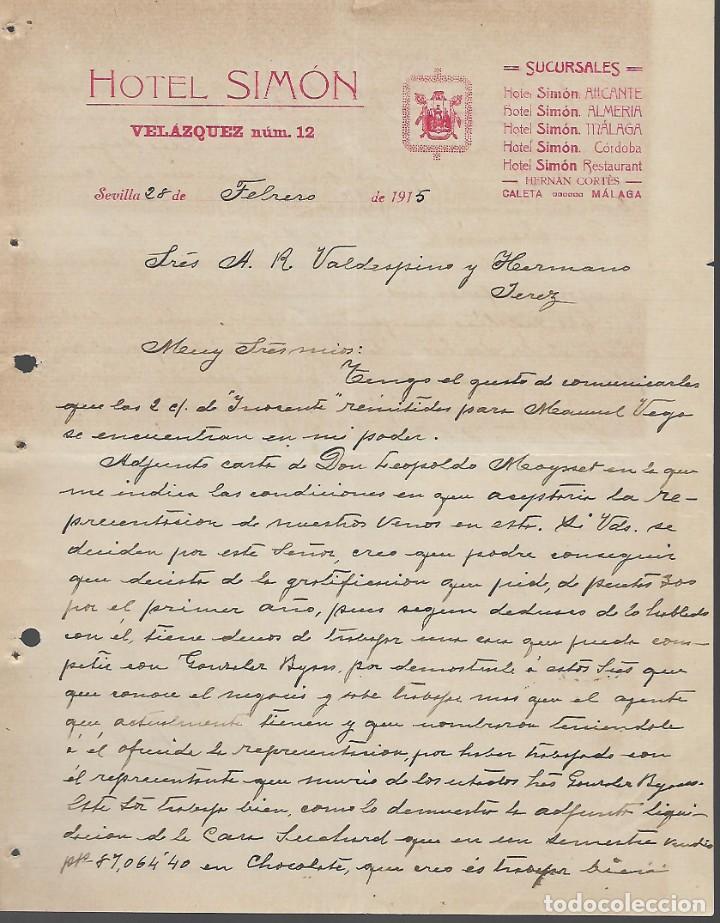 HOTEL SIMÓN
VELÁZQUEZ núm. 12
= SUCURSALES =
Hotel Simón. ALICANTE
Hotel Simón. ALMERIA
Hotel Simón. MÁLAGA
Hotel Simón. Córdoba
Hotel Simón Restaurant
— HERNÁN CORTÉS —
CALETA MÁLAGA
Sevilla 28 de Febrero de 1915
Srés A. R. Valdespino y Hermano
Jerez
Muy Srés mios:
Tengo el gusto de comunicarles
que las 2 c/. de "Inosente" remitidas para Manuel Vega
se encuentran en mi poder.
Adjunto carta de Don Leopoldo Maysset en la que
me indica las condiciones en que aseptaria la re-
presentasion de nuestros vinos en esta. Si Vds. se
deciden por este Señor, creo que podre conseguir
que decista de la gratificasion que pide, de pesetas 300
por el primer año, pues segun dedusco de lo hablado
con él, tiene deceos de trabajar una casa que pueda com-
petir con Gonzalez Byass, por demostrarle á estos Srés que
que conoce el negocio y sabe trabajar mas que el agente
que actualmente tienen y que nombraron teniendole
á él ofresida la representasion, por haber trabajado con
él representante que murio de los citados Srés Gonzalez Byass.
Este Sór trabaja bien, como lo demuestra la adjunta liqui-
dacion de la Casa Suchard que en un semestre vendio
pts 87,064'40 en Chocolate, que creo és trabajar bien
todocoleccion
todocoleccion.net